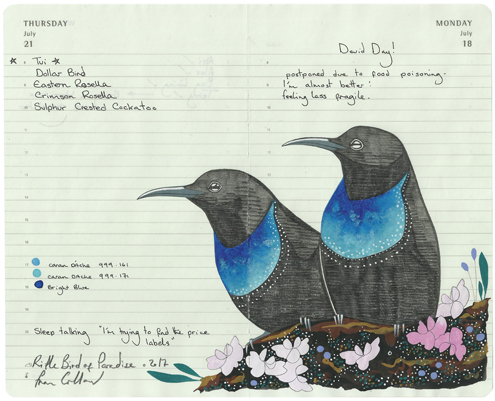 THURSDAY
July
21
* Tui *
Dollar Bird
Eastern Rosella
Crimson Rosella
Sulphur Crested Cockatoo
caran D'Ache 999.161
caran D'Ache 999.171
Bright Blue
Sleep talking "I'm trying to find the price
labels"
Rifle Bird of Paradise
MONDAY
July
18
David Day!
postponed due to food poisoning.
I'm almost better!
feeling less fragile.